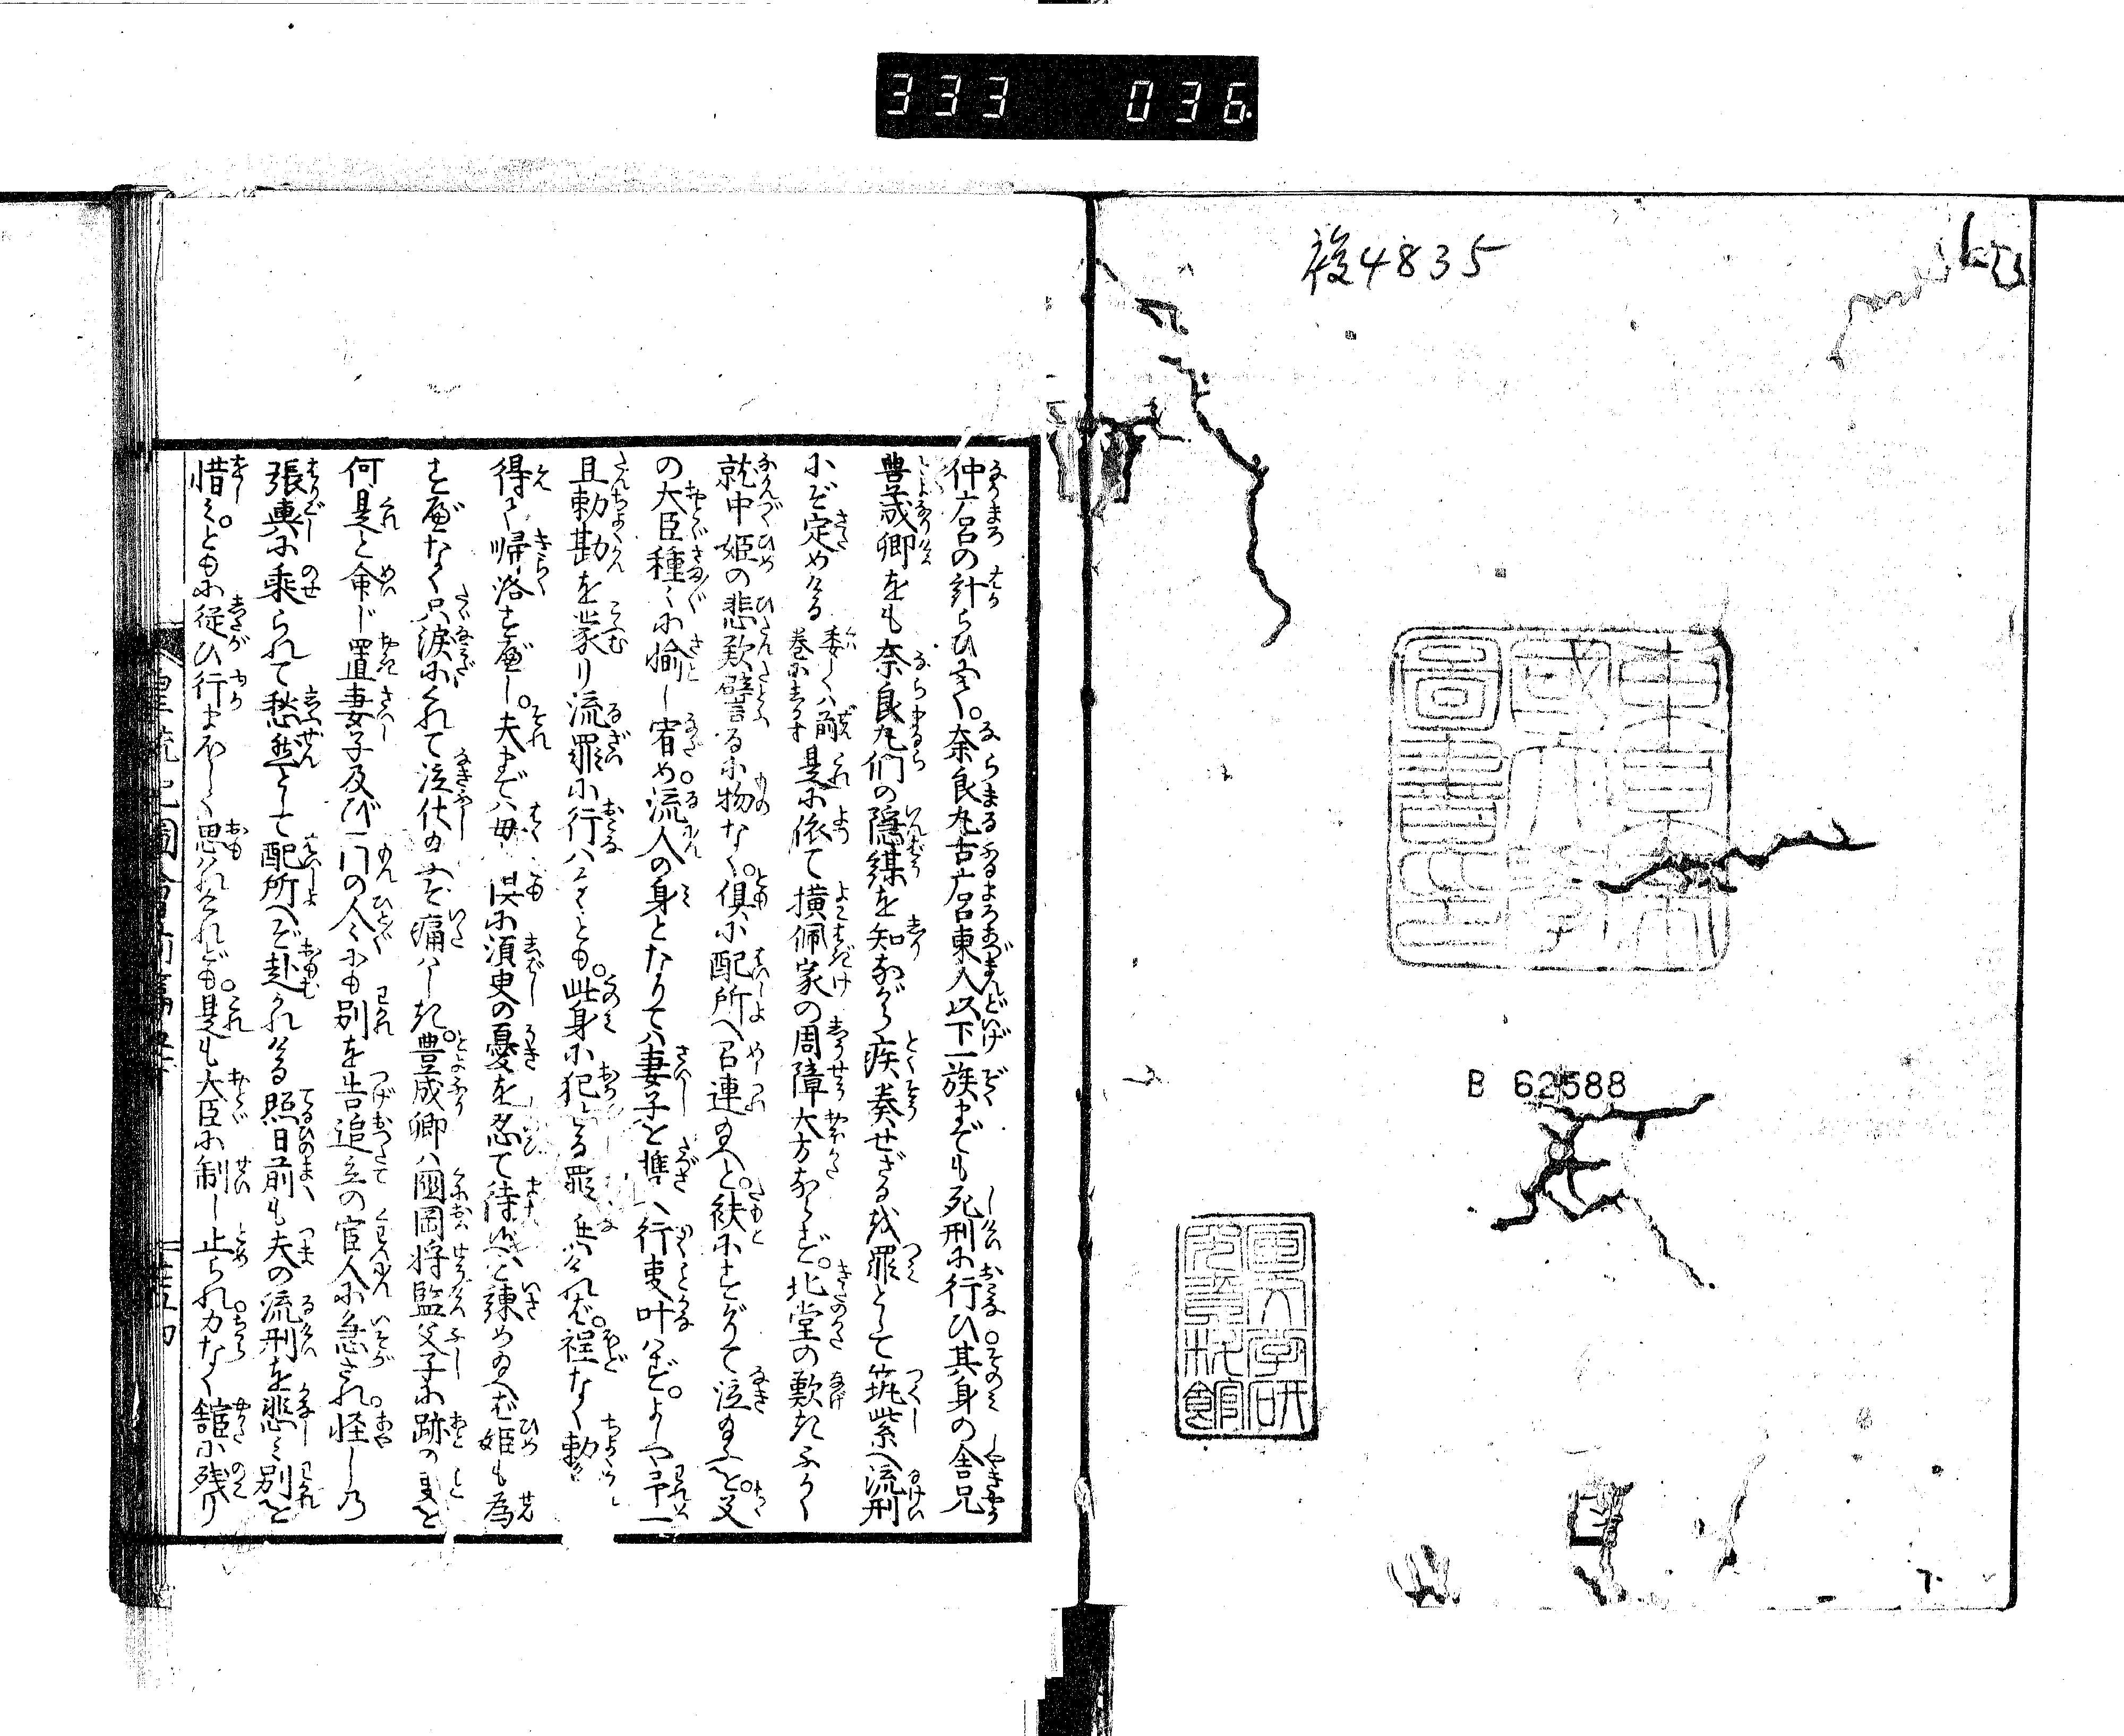 333 036
複4835
東京帝
国大学
図書室
B 62588
国文学研
究資料館
仲広呂の計らひにて。奈良丸古広呂東人以下一族までも死刑に行ひ其身の舎兄
豊成卿をも奈良丸們の隠謀を知ながら疾奏せざる越罪として筑紫へ流刑
にぞ定めける 委しくハ前巻にあらはす 是に依て横佩家の周障大方ならず。北堂の歎きふかく
就中姫の悲歎譬るに物なく。倶に配所へ召連給へと。袂にすがりて泣給ふを。父
の大臣種〻に愉し宥め。流人の身となりてハ妻子を携へ行事叶はず。よしや予一
且勅勘を蒙り流罪に行ハるとも。此身に犯せる罪なければ。程なく勅
得て帰洛すべし。夫までハ母と倶に須臾の憂を忍て待べしと諫め給へば姫も為
すべなく只涙にくれて泣伏給ふぞ痛ハしき。豊成卿ハ国岡将監父子に跡の事を
何是と命じ置妻子及び一門の人〻にも別を告追立の官人に急され。怪しの
張輿に乗られて愁然として配所へぞ赴かれける照日前も夫の流刑を悲み別を
惜み。ともに従ひ行まほしく思はれけれども。是も大臣に制し止られ力なく館に残り